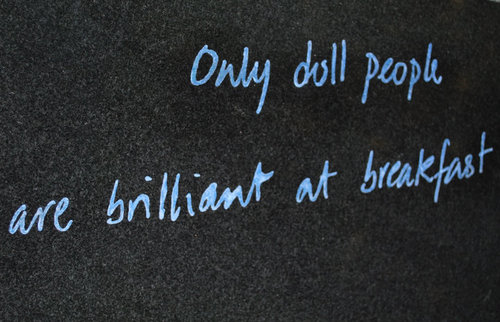 Only dull people
are brilliant at breakfast